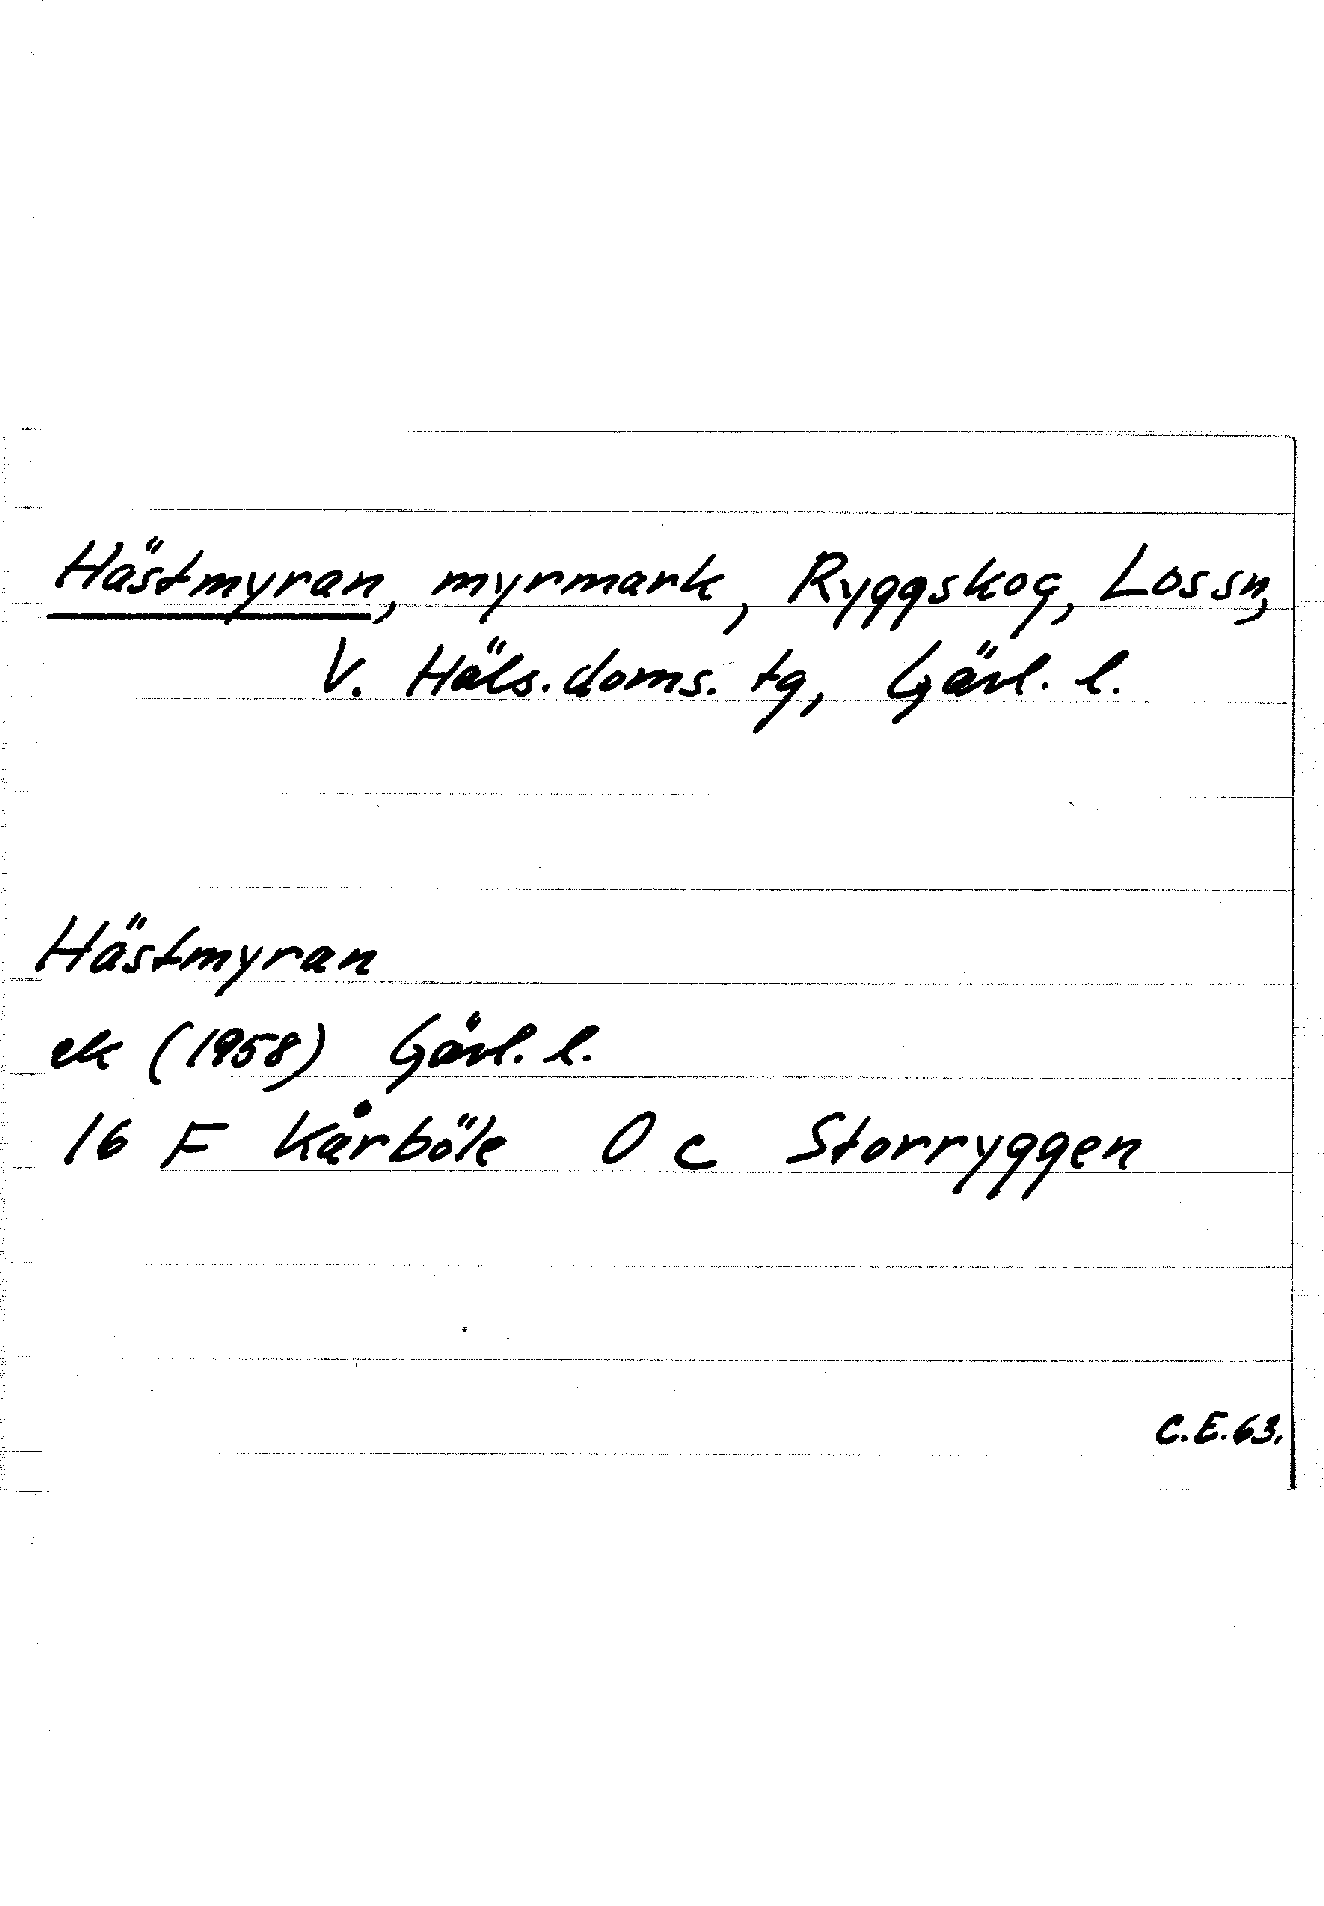 Hästmyran, myrmark, Ryggskog, Los sn,
V. Häls. doms. tg, Gävl. l.
Hästmyran
ek (1958) Gävl. l.
16 F Kårböle 0 c Storryggen
C.E.63.